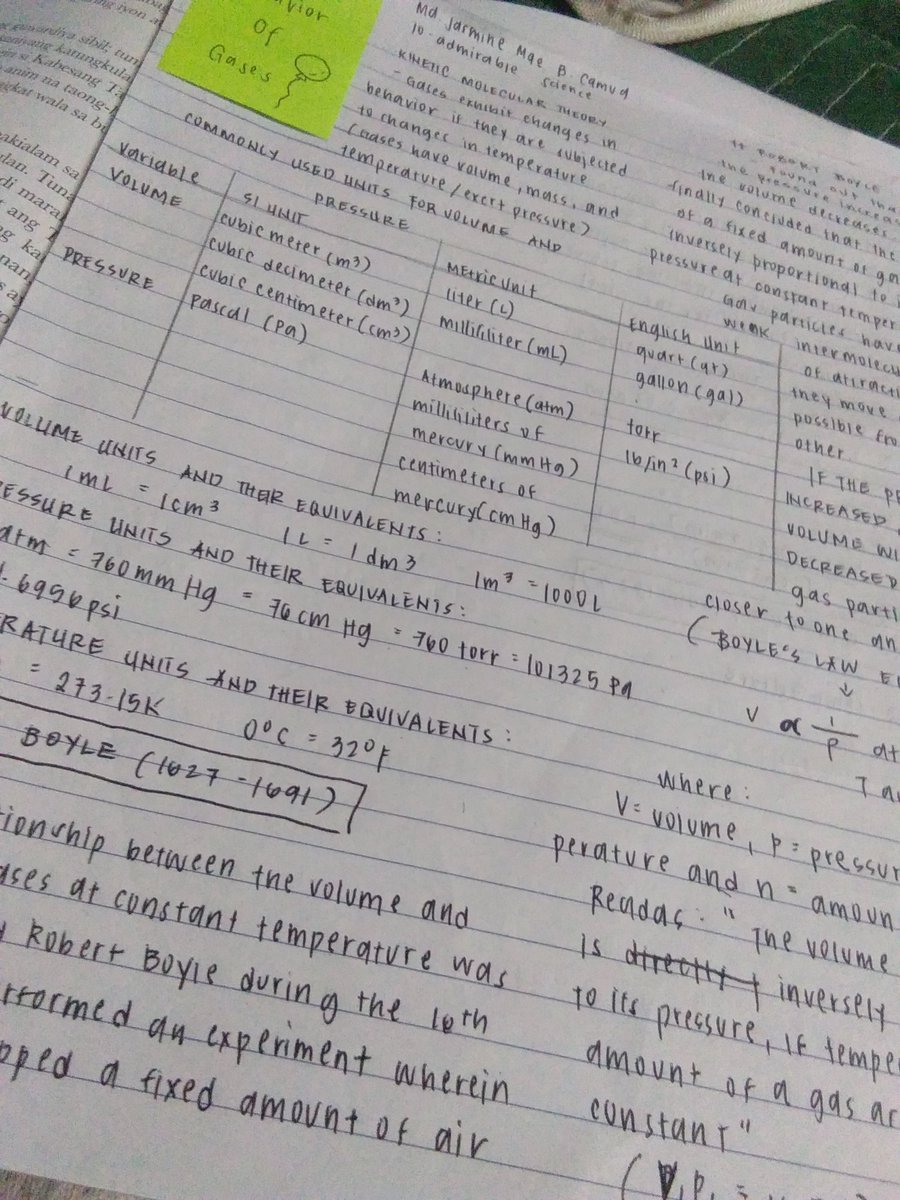 Of
Gases
Md Jasmine Mae B. Camua
10-admirable science
KINETIC MOLECULAR THEORY
- Gases exhibit changes in
behavior if they are subjected
to changes in temperature
(Gases have volume, mass, and
temperature/exert pressure)
COMMONLY USED UNITS FOR VOLUME AND
PRESSURE
variable
SI UNIT
Metric unit
English unit
VOLUME
cubic meter (m³)
cubic decimeter (dm³)
cubic centimeter (cm³)
liter (L)
milliliter (mL)
quart (qt)
gallon (gal)
PRESSURE
pascal (Pa)
Atmosphere (atm)
milliliters of
mercury (mmHg)
centimeters of
mercury (cmHg)
torr
lb/in² (psi)
VOLUME UNITS AND THEIR EQUIVALENTS:
1mL = 1cm³ 1L = 1dm³ 1m³ = 1000L
PRESSURE UNITS AND THEIR EQUIVALENTS:
atm = 760mm Hg = 76 cm Hg = 760 torr = 101325 Pa
.6956psi
UNITS AND THEIR EQUIVALENTS:
= 273.15K 0°C = 32°F
BOYLE (1627-1691)
between the volume and
at constant temperature was
Robert Boyle during the 16th
an experiment wherein
a fixed amount of air
ROBERT BOYLE
found out
the pressure
the volume decreases
finally concluded that the
of a fixed amount of
inversely proportional to
pressure at constant
Gas particles have
weak
of
they move
possible
other
IF THE
INCREASED
VOLUME
DECREASED
gas
closer to one
(BOYLE'S LAW
↓
V ∝ 1/P at
T
where:
V = volume, P = pressure
and n =
Read as: "The volume
is directly inversely
to its pressure, if
amount of a gas
constant"